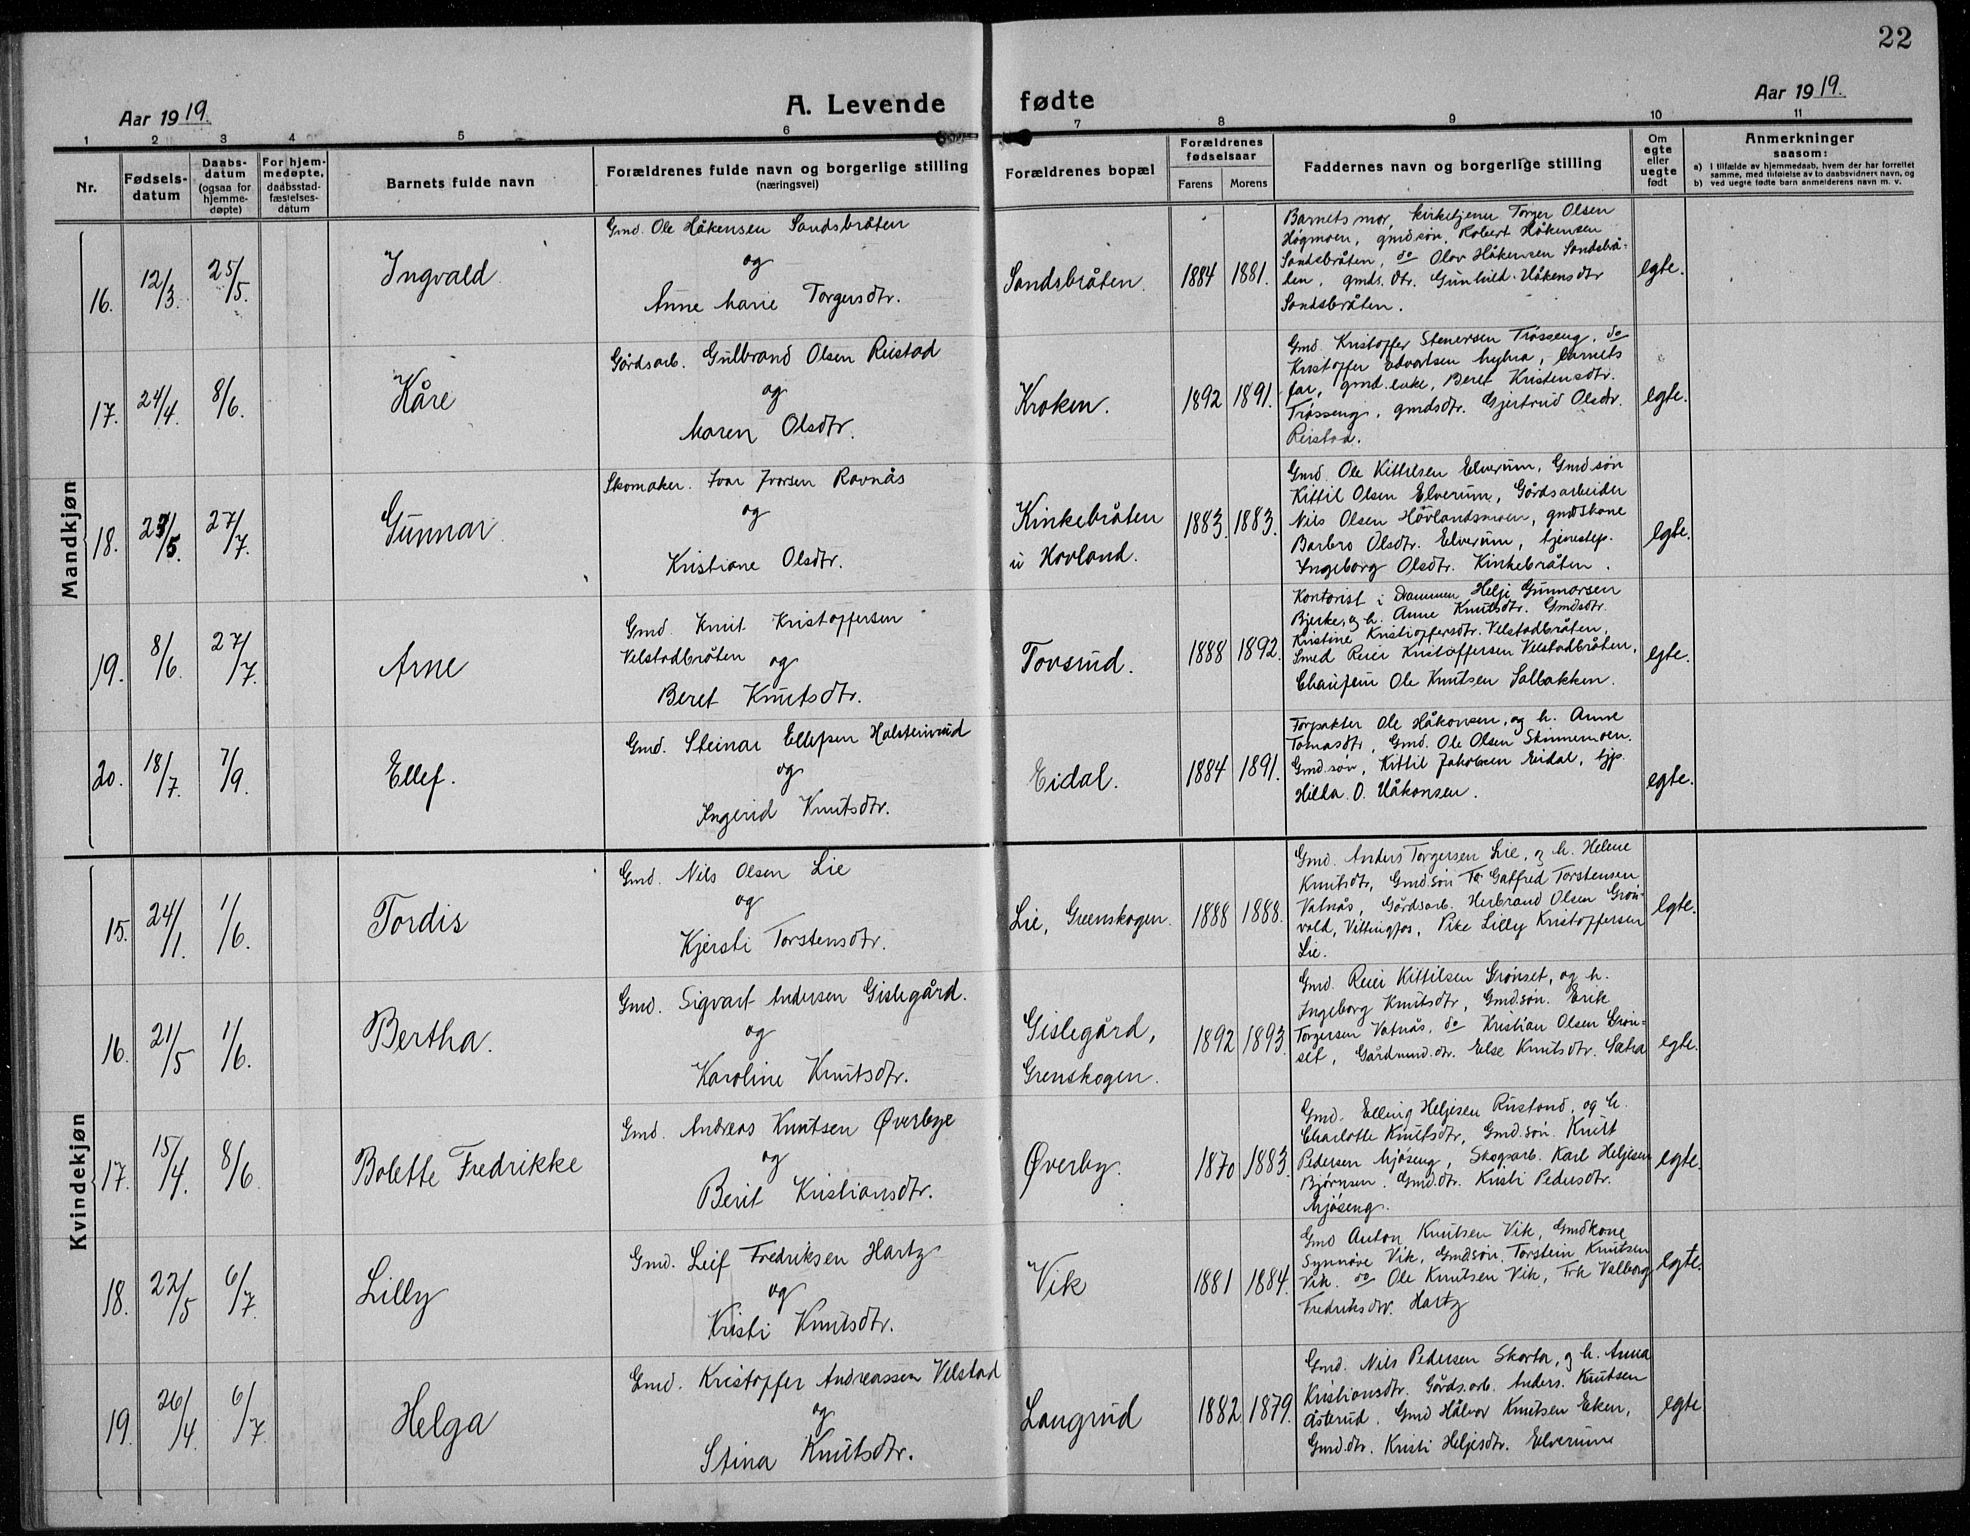 22
Aar 1919.
A. Levende fødte
Aar 1919.
1 2 3 4 5 6 7 8 9 10 11
Nr.
Fødsels-
datum
Daabs-
datum
(ogsaa for
hjemme-
døpte)
For hjem-
medøpte,
daabsstad-
fæstelses-
datum
Barnets fulde navn
Forældrenes fulde navn og borgerlige stilling
(næringsvei)
Forældrenes bopæl
Forældrenes
fødselsaar
Farens Morens
Faddernes navn og borgerlige stilling
Om
egte
eller
uegte
født
Anmerkninger
saasom:
a) I tilfælde av hjemmedaab, hvem der har forrettet
samme, med tilføielse av to daabsvidners navn, og
b) ved uegte fødte barn anmelderens navn m. v.
Mandkjøn
16. 12/3 25/5. Ingvald
Gmd. Ole Håkensen Sandsbråten
og
Anne Marie Torgersdtr.
Sandsbråten. 1884 1881.
Barnets mor, kirketjener Torger Olsen
Høgmoen, gmdsøn, Robert Håkensen
Sandsbråten, do Olav Håkensen Sandsbrå-
ten, gmds. dtr. Gunhild Håkensdtr
Sandsbråten.
egte.
17. 24/4. 8/6. Kåre
Gårdsarb. Gulbrand Olsen Rustad
og
Maren Olsdtr.
Kroken. 1892 1891.
Gmd. Kristoffer Stenersen Trøsseng, do
Kristoffer Edvardsen Myhra, barnets
far, gmd. enke, Beret Kristensdtr.
Trøsseng, gmdsdtr. Gjertrud Olsdtr.
Rustad.
egte.
18. 23/5. 27/7. Gunnar
Skomaker. Ivar Ivarsen Ravnås
og
Kristiane Olsdtr.
Kinkebråten
u Hovland.
1883. 1883.
Gmd. Ole Kittilsen Elverum, Gmdsøn
Kittil Olsen Elverum, Gårdsarbeider
Nils Olsen Hovlandsmoen, gmdskone
Barbro Olsdtr. Elverum, tjenestep.
Ingeborg Olsdtr. Kinkebråten.
egte.
19. 8/6. 27/7. Arne
Gmd. Knut Kristoffersen
Velstadbråten og
Beret Knutsdtr.
Tovsrud. 1888 1892.
Kontorist i Drammen Helje Gunnarsen
Bjerke, og h. Anne Knutsdtr. Gmdsdtr.
Kristine Kristoffersdtr. Velstadbråten,
Smed Reier Kristoffersen Velstadbråten,
Chaufør Ole Knutsen Solbakken.
egte.
20. 18/7. 7/9. Ellef.
Gmd. Steinar Ellefsen Halstenrud
og
Ingerid Knutsdtr.
Eidal. 1884 1891.
Forpakter Ole Håkonsen, og h. Anne
Tomasdtr, Gmd. Ole Olsen Skinnemoen.
Gmdsøn, Kittil Jakobsen Eidal, tjp.
Hilla O. Håkonsen.
egte.
Kvindekjøn
15. 24/1. 1/6. Tordis
Gmd. Nils Olsen Lie
og
Kjersti Torstensdtr.
Lie, Grenskogen. 1888 1888.
Gmd. Anders Torgersen Lie, og h. Helene
Knutsdtr, Gmd.søn Gotfred Torstensen
Vatnås, Gårdsarb. Herbrand Olsen Grøn-
vold, Vittingfos, Pike Lilly Kristoffersen
Lie.
egte.
16. 21/5 1/6. Bertha.
Gmd. Sigvart Andersen Gislegård.
og
Karoline Knutsdtr.
Gislegård,
Grenskogen.
1892 1893.
Gmd. Reier Kittilsen Grønset, og h.
Ingeborg Knutsdtr, Gmd.søn. Erik
Torgersen Vatnås, do Kristian Olsen Grøn-
set, Gårdmd. dtr. Else Knutsdtr. Sætra
egte.
17. 15/4. 8/6. Bolette Fredrikke
Gmd. Andreas Knutsen Øverbye
og
Berit Kristiansdtr.
Øverby. 1870 1883.
Gmd. Elling Heljesen Rustand, og h.
Charlotte Knutsdtr, Gmd.søn. Knut
Pedersen Mjøseng, Skogsarb. Karl Heljesen
Bjørnsen. Gmd.dtr. Kristi Pedersdtr.
Mjøseng.
egte.
18. 22/5 6/7. Lilly
Gmd. Leif Fredriksen Hartz
og
Kristi Knutsdtr.
Vik 1881 1884.
Gmd Anton Knutsen Vik, Gmdkone
Synnøve Vik, Gmdsøn, Torstein Knutsen
Vik. do Ole Knutsen Vik, Frk Valborg
Fredriksdtr. Hartz
egte.
19. 26/4 6/7. Helga
Gmd. Kristoffer Andreassen Velstad
og
Stina Knutsdtr.
Langrud 1882 1879.
Gmd. Nils Pedersen Skarta, og h. Anna
Kristiansdtr. Gårds.arb. Anders. Knutsen
Åsterud. Gmd Hålvor Knutsen Eken,
Gmd.dtr. Kristi Heljesdtr. Elverum
egte